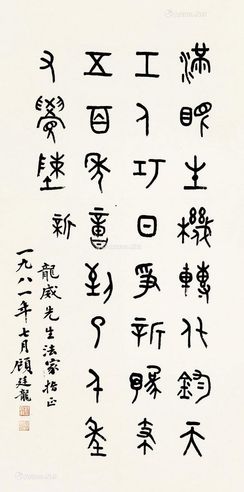 滿眼生機轉化鈞天
工人巧日爭新豫支
五百年意到了千年
又覺陳
新
龍威先生法家指正
一九八一年七月顧廷龍